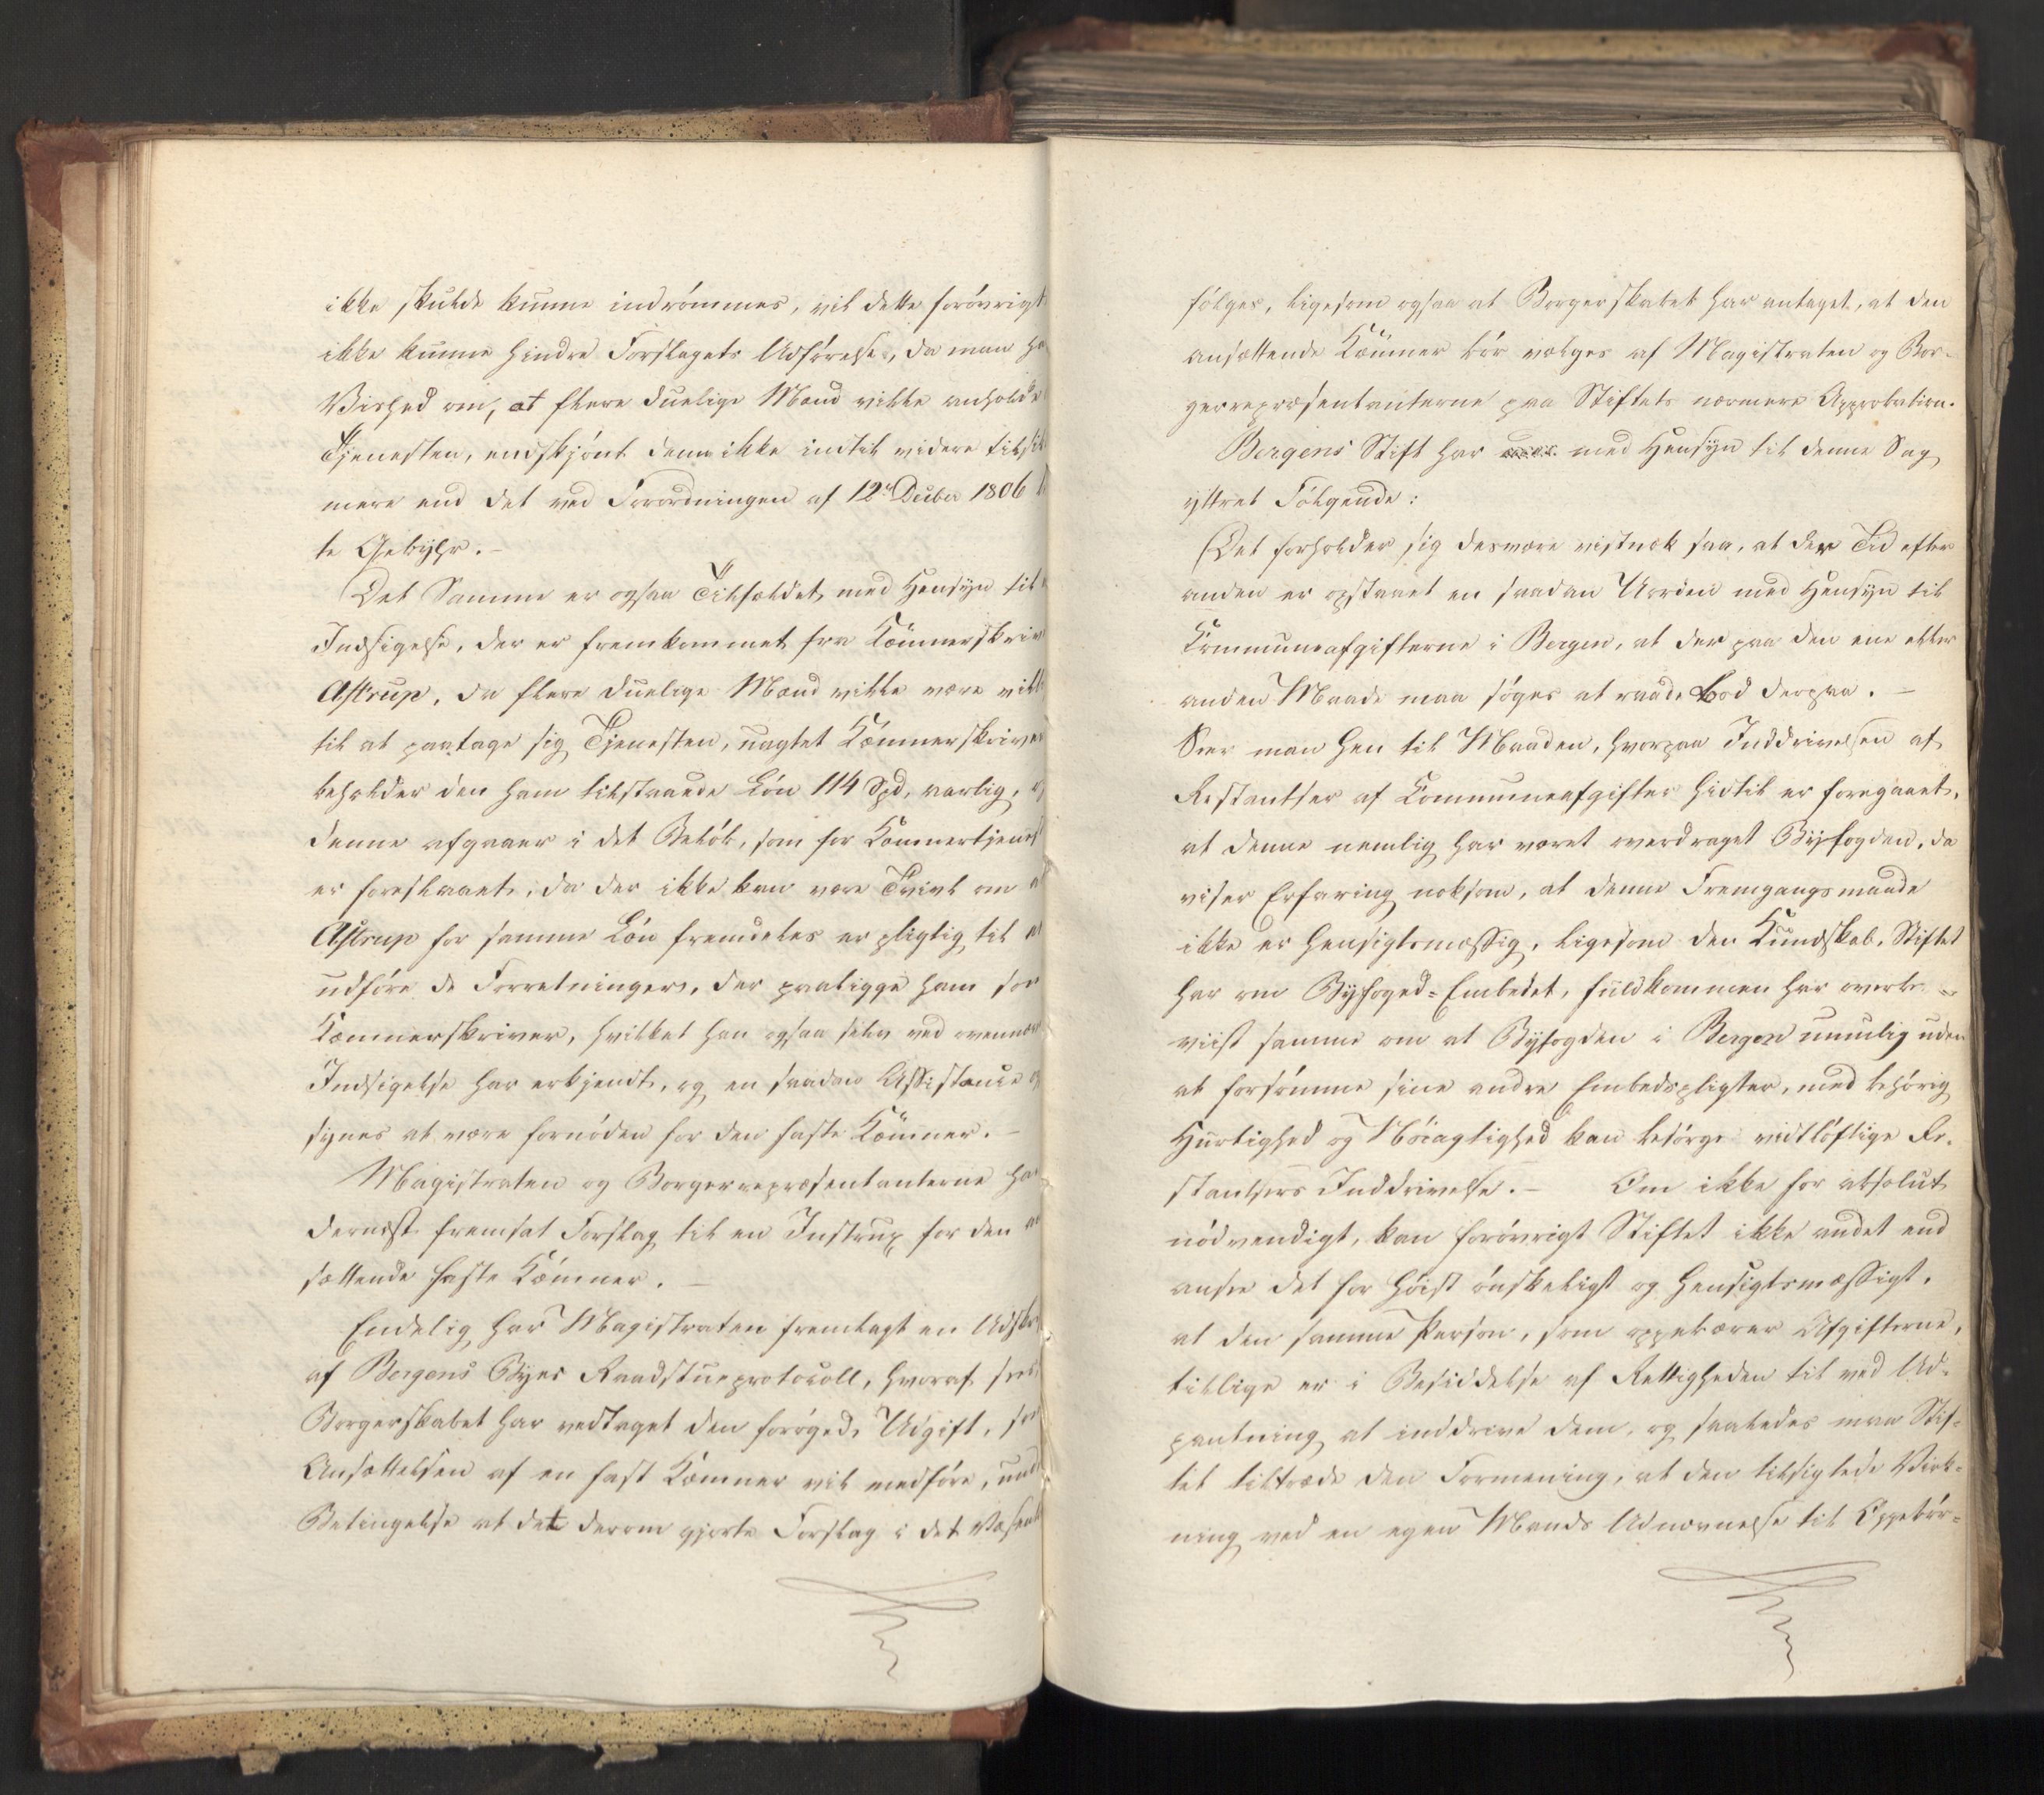 ikke skulde kunne indrømmes, vil dette forøvrigt
ikke kunne hindre Forslagets Udførelse, da man ha
Vished om, at flere duelige Mænd ville anholde
Tjenesten, endskjønt dem ikke indtil videre tilst
mere end det ved Forordningen af 12te Decbr 1806 b
te Gebyhr.-
Det Samme er ogsaa Tilfældet med Hensyn til
Indsigelse, der er fremkommet fra Kæmnerskriv
Astrup, da flere duelige Mænd ville være vill
til at paatage sig Tjenesten, uagtet Kæmnerskriver
beholder den ham tilstaaede Løn 114 Spd, aarlig, og
denne afgaaer i det Beløb, som for Kæmnertjenest
er foreslaaet, da der ikke kan være Tvivl om a
Astrup for samme Løn fremdeles er pligtig til at
udføre de Forretninger, der paaligge ham som
Kæmnerskriver, hvilket han ogsaa selv ved ovennævn
Indsigelse har erkjendt, og en saadan Assistance og
synes at være fornøden for den faste Kæmner.-
Magistraten og Borgerrepræsentanterne ha
dernæst fremsat Forslag til en Instrux for den an
sættende faste Kæmner.-
Endelig har Magistraten fremlagt en Udskr
af Bergens Byes Raadstueprotocoll, hvoraf sees,
Borgerskabet har vedtaget den forøgede Udgift, som
Ansættelsen af en fast Kæmner vil medføre, unde
Betingelse at det derom gjorte Forslag i det Væsentl
følges, ligesom ogsaa at Borgerskabet har antaget, at den
ansættende Kæmner bør vælges af Magistraten og Bor-
gerrepræsentanterne paa Stiftets nærmere Approbation.
Bergens Stift har med Hensyn til denne Sag
yttret Følgende:
Det forholder sig desværre vistnok saa, at der Tid efter
anden er opstaaet en saadan Uorden med Hensyn til
Communeafgifterne i Bergen, at der paa den ene eller
anden Maade maa søges at raade Bod derpaa.-
Seer man hen til Maaden, hvorpaa Inddrivelsen af
Restantser af Communeafgifter hidtil er foregaaet,
at denne nemlig har været overdraget Byfogden, da
viser Erfaring noksom, at denne Fremgangsmaade
ikke er hensigtsmæssig, ligesom den Kundskab, Stiftet
har om Byfoged-Embedet, fuldkommen har overbe-
viist samme om at Byfogden i Bergen umulig uden
at forsømme sine andre Embedspligter, med behørig
Hurtighed og Nøiagtighed kan besørge vidtløftige Re-
stantsers Inddrivelse.- Om ikke for absolut
nødvendigt, kan forøvrigt Stiftet ikke andet end
ansee det for høist ønskeligt og hensigtsmæssigt,
at den samme Person, som oppebærer Afgifterne,
tillige er i Besiddelse af Rettigheden til ved Ud-
pantning at inddrive dem, og saaledes maa Stif-
tet tiltræde den Formening, at den tilsigtede Virk-
ning ved en egen Mands Udnævnelse til Oppebør-